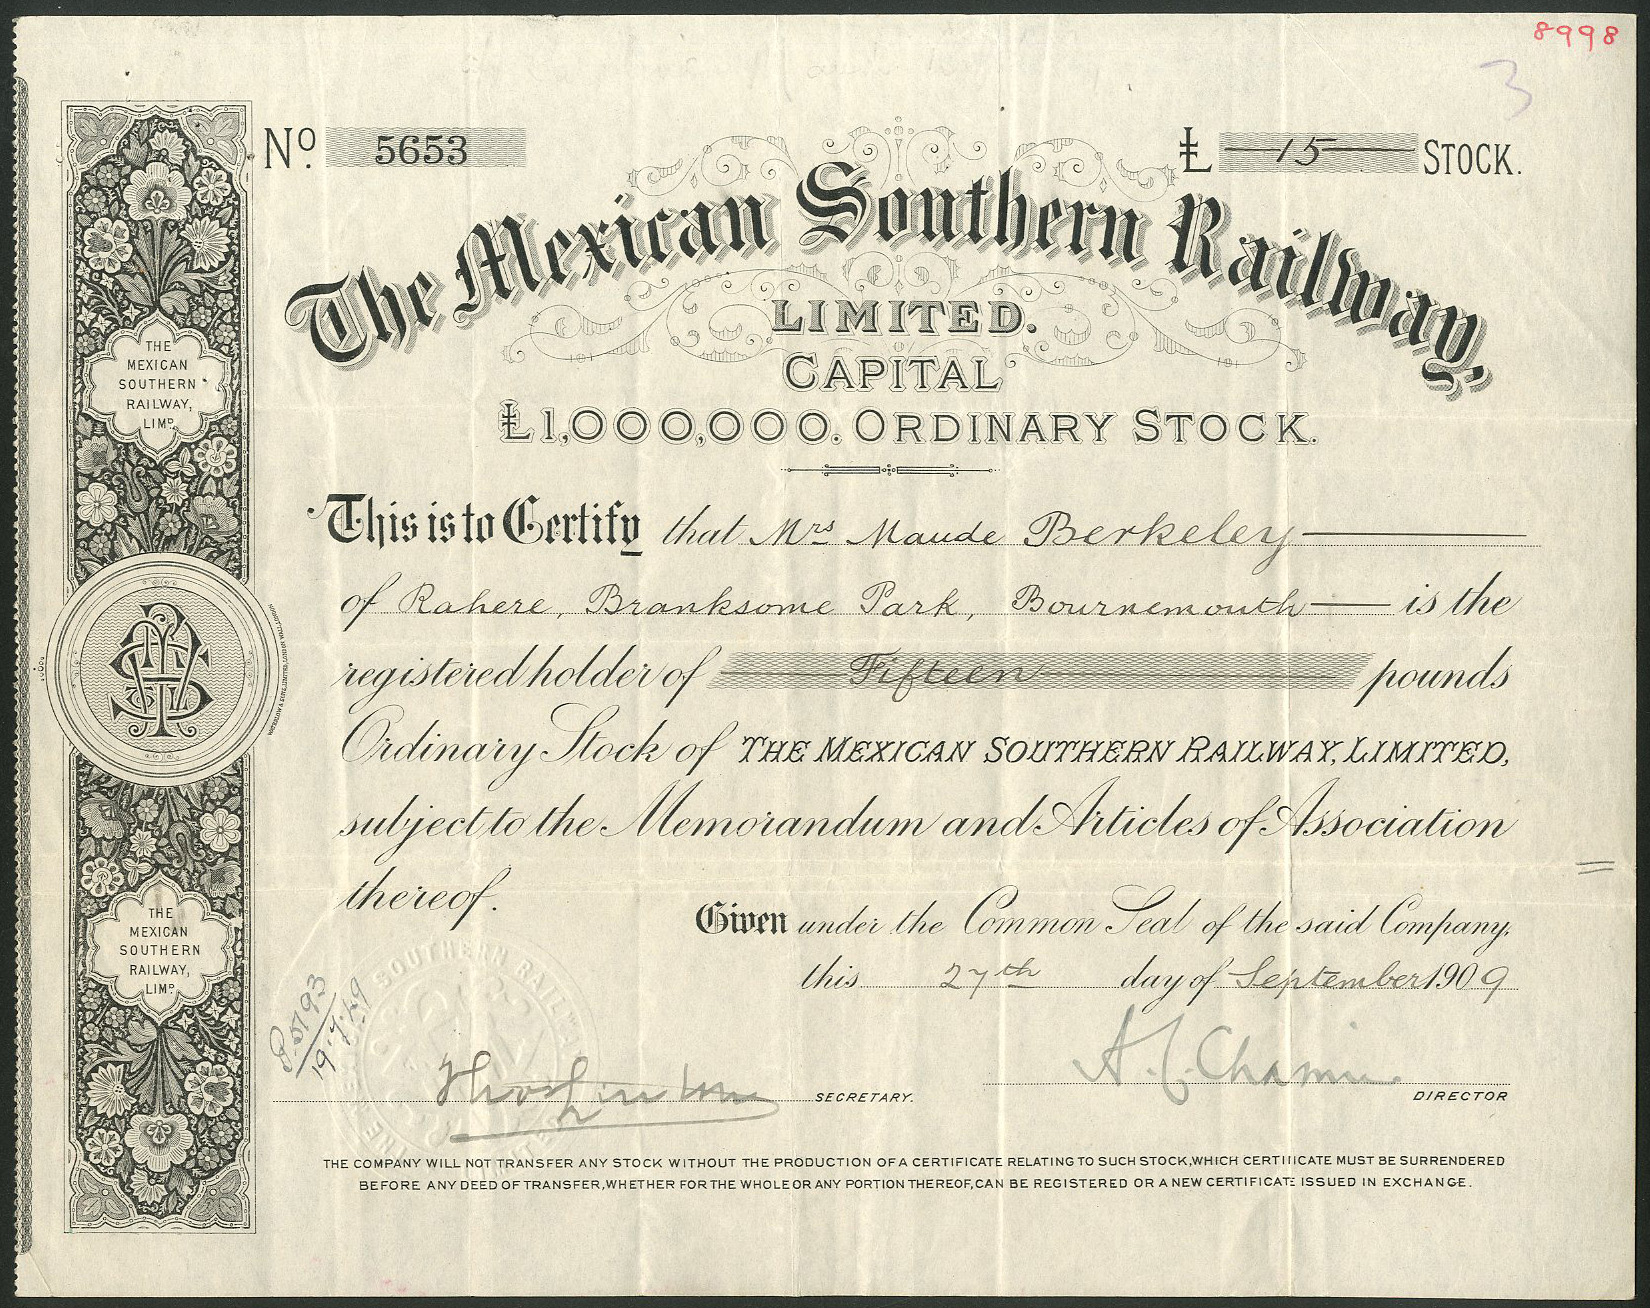 8998
3
No. 5653
£ 15 STOCK.
The Mexican Southern Railway,
LIMITED.
CAPITAL
£1,000,000. ORDINARY STOCK.
This is to Certify that Mrs Maude Berkeley
of Rahere, Branksome Park, Bournemouth is the
registered holder of Fifteen pounds
Ordinary Stock of THE MEXICAN SOUTHERN RAILWAY, LIMITED,
subject to the Memorandum and Articles of Association
thereof.
Given under the Common Seal of the said Company,
this 27th day of September 1909
SECRETARY.
A. C. Chamin
DIRECTOR
THE COMPANY WILL NOT TRANSFER ANY STOCK WITHOUT THE PRODUCTION OF A CERTIFICATE RELATING TO SUCH STOCK, WHICH CERTIFICATE MUST BE SURRENDERED
BEFORE ANY DEED OF TRANSFER, WHETHER FOR THE WHOLE OR ANY PORTION THEREOF, CAN BE REGISTERED OR A NEW CERTIFICATE ISSUED IN EXCHANGE.
THE
MEXICAN
SOUTHERN
RAILWAY,
LIMD.
THE
MEXICAN
SOUTHERN
RAILWAY,
LIMD.
SOUTHERN RAILWAY